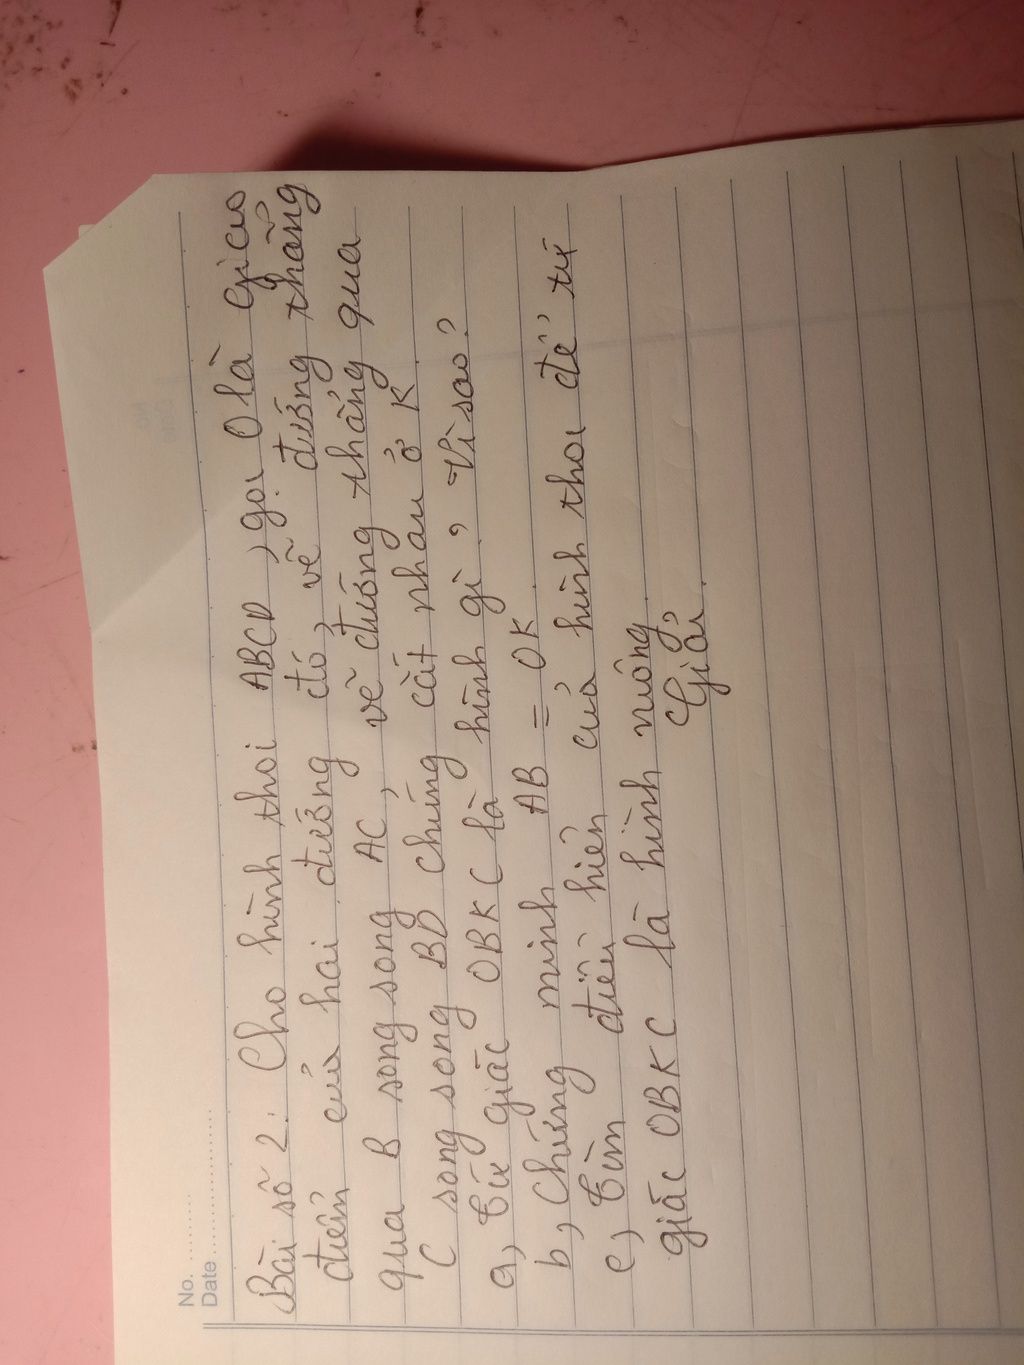 No. ..........
Date ....................
Bài số 2: Cho hình thoi ABCD, gọi O là giao
điểm của hai đường đó, vẽ đường thẳng
qua B song song AC, vẽ đường thẳng qua
C song song BD chúng cắt nhau ở K
a, Tứ giác OBKC là hình gì, Vì sao?
b, Chứng minh AB = OK.
c, Tìm điều kiên của hình thoi để tứ
giác OBKC là hình nuông
Giải.